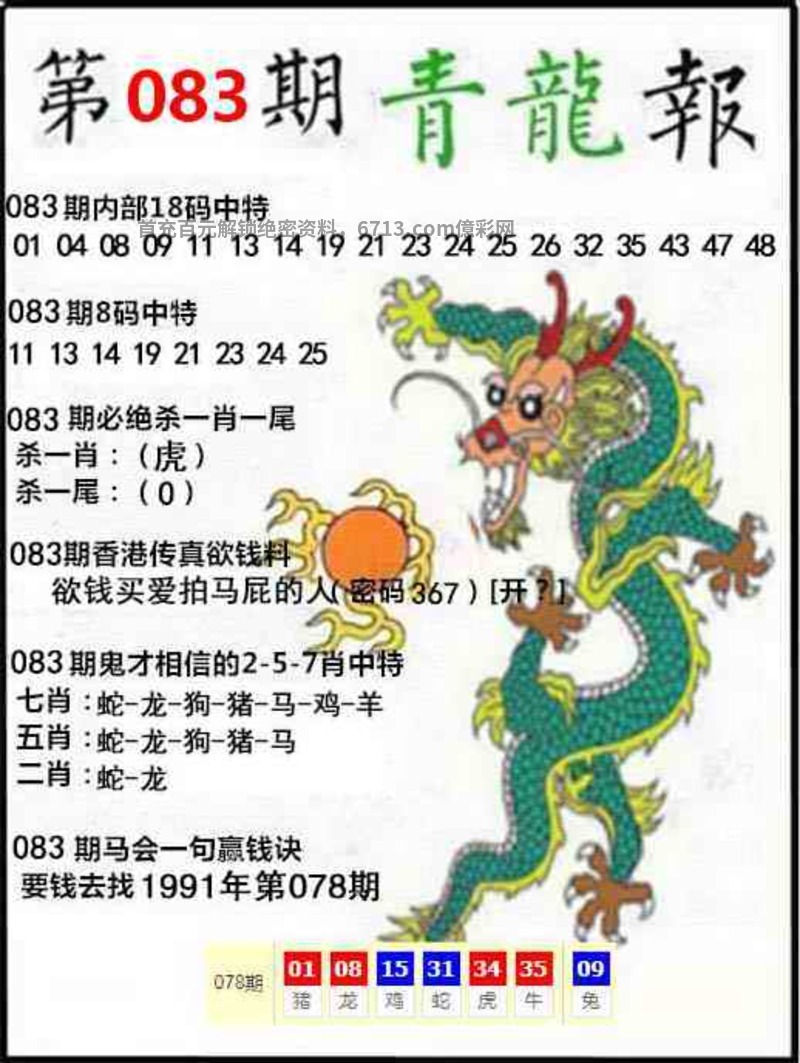 第083期青龍報
083期内部18码中特
首充百元解锁绝密资料，6713.com億彩网
01 04 08 09 11 13 14 19 21 23 24 25 26 32 35 43 47 48
083期8码中特
11 13 14 19 21 23 24 25
083 期必绝杀一肖一尾
杀一肖：（虎）
杀一尾：（0）
083期香港传真欲钱料
欲钱买爱拍马屁的人（密码367）[开？]
083期鬼才相信的2-5-7肖中特
七肖：蛇-龙-狗-猪-马-鸡-羊
五肖：蛇-龙-狗-猪-马
二肖：蛇-龙
083 期马会一句赢钱诀
要钱去找1991年第078期
078期 01 08 15 31 34 35 09
猪 龙 鸡 蛇 虎 牛 兔